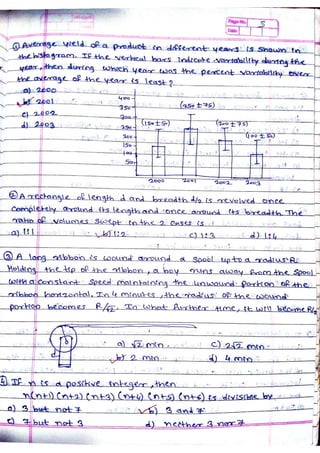 Page No. 5
Date
① Average yield of a product in different years is shown in
the histogram. If the vertical bars indicate variability during the
year, then during which year was the percent variability over
the average of the year is least?
a) 2000
b) 2001
c) 2002
d) 2003
400
350
300
250
200
150
100
50
(150±50)
(250±75)
(200±75)
(100±50)
2000 2001 2002 2003
② A rectangle of length d and breadth d/2 is revolved once
completely around its length and once around its breadth. The
ratio of volumes swept in the 2 cases is
a) 1:1 b) 1:2 c) 1:3 d) 1:4
③ A long ribbon is wound around a spool up to a radius R.
Holding the tip of the ribbon, a boy runs away from the spool
with a constant speed maintaining the unwound portion of the
ribbon horizontal. In 4 minutes, the radius of the wound
portion becomes R/√2. In what further time, it will become R/2
a) √2 min. c) 2√2 min.
b) 2 min d) 4 min
④ If n is a positive integer, then
n(n+1)(n+2)(n+3)(n+4)(n+5)(n+6) is divisible by
a) 3 but not 7 b) 3 and 7
c) 7 but not 3 d) neither 3 nor 7